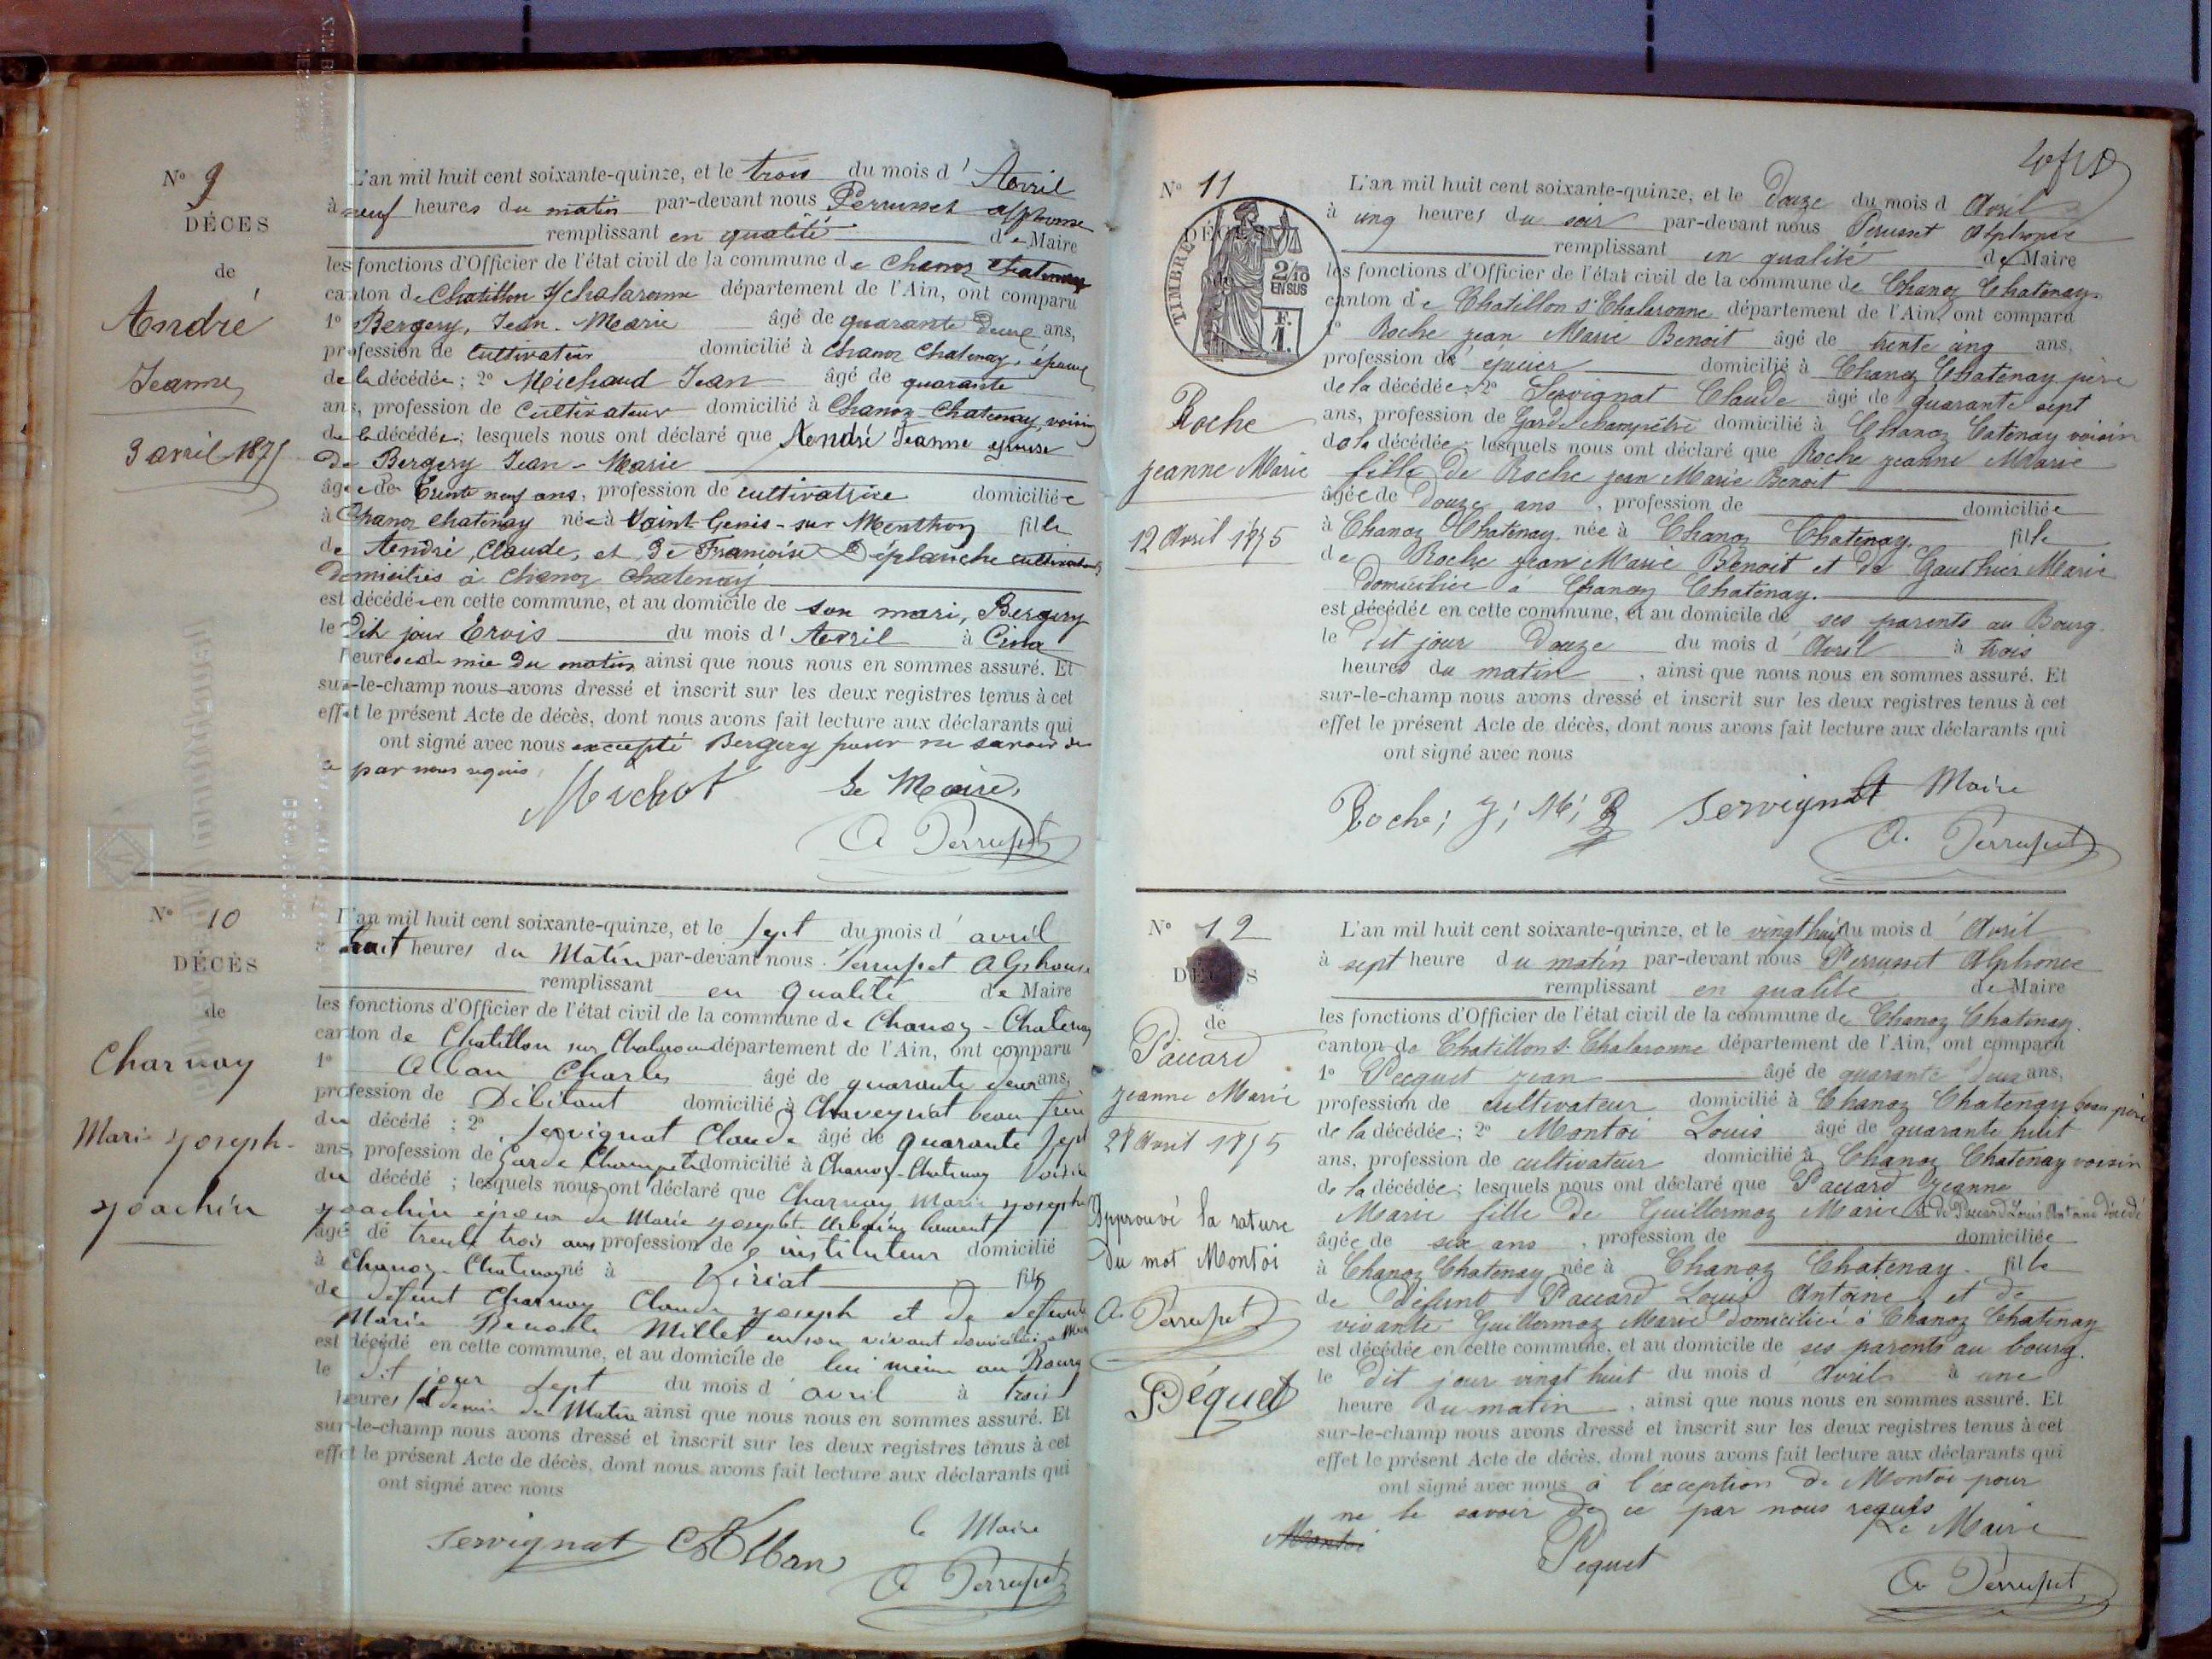 N° 9
DÉCES
de
André
Jeanne
3 avril 1875
L'an mil huit cent soixante-quinze, et le trois du mois d'Avril
à neuf heures du matin par-devant nous Perrusset alphonse
remplissant en qualité de Maire
les fonctions d'Officier de l'état civil de la commune de Chanoz Chatenay
canton de Chatillon s/chalaronne département de l'Ain, ont comparu
1° Bergery, Jean-Marie âgé de quarante deux ans,
profession de cultivateur domicilié à Chanoz Chatenay, époux
de la décédée; 2° Michaud Jean âgé de quarante
ans, profession de Cultivateur domicilié à Chanoz-Chatenay voisin
de la décédée; lesquels nous ont déclaré que André Jeanne épouse
de Bergery Jean-Marie
âgée de trente neuf ans, profession de cultivatrice domiciliée
à Chanoz Chatenay née à Saint-Genis-sur Menthon fille
de André, Claude, et de Françoise Déplanche cultivateurs
domiciliés à Chanoz Chatenay
est décédée en cette commune, et au domicile de son mari, Bergery
le dit jour trois du mois d'Avril à Cinq
heures et demie du matin ainsi que nous nous en sommes assuré. Et
sur-le-champ nous avons dressé et inscrit sur les deux registres tenus à cet
effet le présent Acte de décès, dont nous avons fait lecture aux déclarants qui
ont signé avec nous excepté Bergery pour ne savoir de
ce par nous requis
Michot Le Maire,
A Perrusset
N° 10
DÉCÈS
de
Charnay
Marie Joseph-
Joachin
L'an mil huit cent soixante-quinze, et le sept du mois d'avril
à huit heures du Matin par-devant nous Perrusset Alphonse
remplissant en qualité de Maire
les fonctions d'Officier de l'état civil de la commune de Chanoz-Chatenay
canton de Chatillon sur Chalaronne département de l'Ain, ont comparu
1° Alban Charles âgé de quarante deux ans,
profession de Débitant domicilié à Chaveyriat beau frère
du décédé; 2° Servignat Claude âgé de quarante sept
ans, profession de Garde Champêtre domicilié à Chanoz-Chatenay Voisin
du décédé; lesquels nous ont déclaré que Charnay Marie Joseph
Joachin époux de Marie Joseph laurent
âgé de trente trois ans profession de instituteur domicilié
à Chanoz-Chatenay né à Viriat fils
de défunt Charnay Claude Joseph et de defunte
Marie Benoite Millet en son vivant domiciliés
est décédé en cette commune, et au domicile de lui même au Bourg
le dit jour sept du mois d'avril à trois
heures et demie du Matin ainsi que nous nous en sommes assuré. Et
sur-le-champ nous avons dressé et inscrit sur les deux registres tenus à cet
effet le présent Acte de décès, dont nous avons fait lecture aux déclarants qui
ont signé avec nous
Servignat Ch Alban le Maire
A Perrusset
N° 11
DÉCÈS
TIMBRE
2/10
EN SUS
F.
1.
Roche
jeanne Marie
12 Avril 1875
L'an mil huit cent soixante-quinze, et le douze du mois d'Avril
à cinq heures du soir par-devant nous Perusset Alphonse
remplissant en qualité de Maire
les fonctions d'Officier de l'état civil de la commune de Chanoz Chatenay
canton de Chatillon s. Chalaronne département de l'Ain, ont comparu
1° Roche jean Marie Benoit âgé de trente cinq ans,
profession de épicier domicilié à Chanoz Chatenay père
de la décédée; 2° Servignat Claude âgé de quarante sept
ans, profession de Garde champêtre domicilié à Chanoz Catenay voisin
de la décédée; lesquels nous ont déclaré que Roche jeanne Marie
fille de Roche jean Marie Benoit
âgée de douze ans, profession de domiciliée
à Chanoz Chatenay née à Chanoz Chatenay fille
de Roche jean Marie Benoit et de Gauthier Marie
domiciliée à Chanoz Chatenay.
est décédée en cette commune, et au domicile de ses parents au Bourg.
le dit jour douze du mois d'Avril à trois
heures du matin, ainsi que nous nous en sommes assuré. Et
sur-le-champ nous avons dressé et inscrit sur les deux registres tenus à cet
effet le présent Acte de décès, dont nous avons fait lecture aux déclarants qui
ont signé avec nous
Roche; J; M; B Servignat Maire
A. Perrusset
N° 12
DÉCÈS
de
Paccard
jeanne Marie
28 Avril 1875
Approuvé la rature
du mot Montoi
A. Perrusset
Péquet
L'an mil huit cent soixante-quinze, et le vingt huit du mois d'Avril
à sept heure du matin par-devant nous Perrusset Alphonse
remplissant en qualité de Maire
les fonctions d'Officier de l'état civil de la commune de Chanoz Chatenay.
canton de Chatillon s. Chalaronne département de l'Ain, ont comparu
1° Pecquet jean âgé de quarante deux ans,
profession de cultivateur domicilié à Chanoz Chatenay beau père
de la décédée; 2° Montoi Louis âgé de quarante huit
ans, profession de cultivateur domicilié à Chanoz Chatenay voisin
de la décédée; lesquels nous ont déclaré que Paccard jeanne
Marie fille de Guillermoz Marie & de Paccard Louis Antoine décédé
âgée de six ans, profession de domiciliée
à Chanoz Chatenay née à Chanoz Chatenay. fille
de défunt Paccard Louis Antoine et de
vivante Guillermoz Marie domiciliée à Chanoz Chatenay
est décédée en cette commune, et au domicile de ses parents au bourg.
le dit jour vingt huit du mois d'Avril à une
heure du matin, ainsi que nous nous en sommes assuré. Et
sur-le-champ nous avons dressé et inscrit sur les deux registres tenus à cet
effet le présent Acte de décès, dont nous avons fait lecture aux déclarants qui
ont signé avec nous à l'exception de Montoi pour
ne le savoir de ce par nous requis
Montoi Pequet Le Maire
A Perrusset